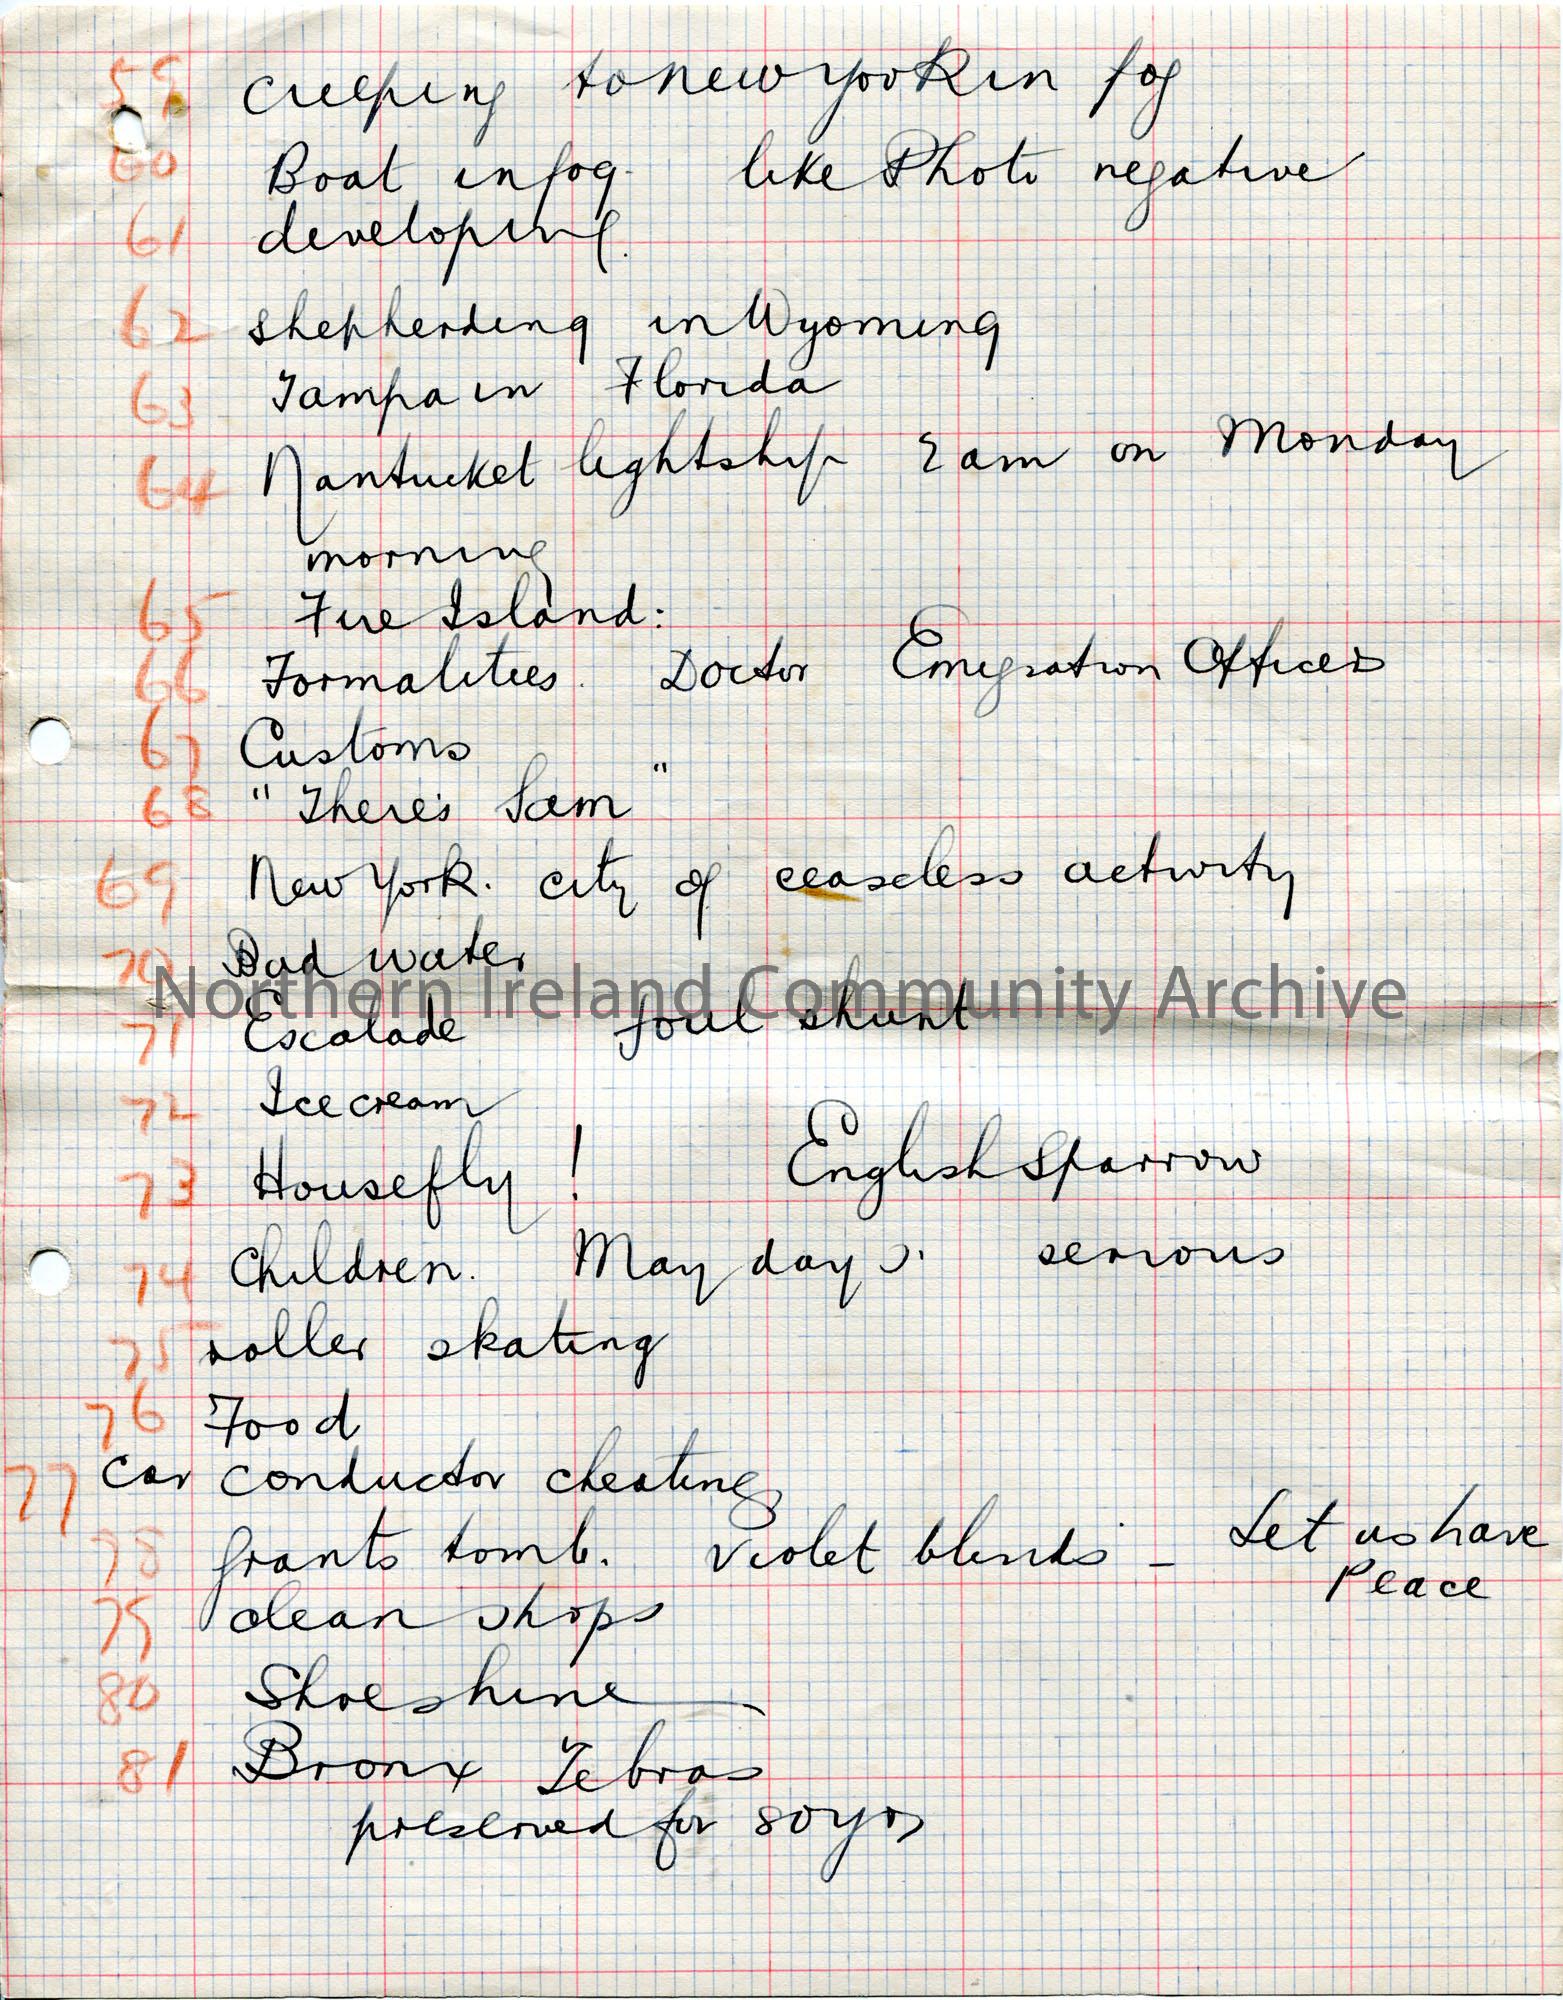 59 Creeping to New York in fog
60 Boat in fog. like Photo negative
61 developing.
62 Shepherding in Wyoming
63 Tampa in Florida
64 Nantucket lightship 2 am on Monday
morning
65 Fire Island:
66 Formalities. Doctor Emigration Officers
67 Customs
68 "There's Sam"
69 New York. City of ceaseless activity
70 Bad water
Northern Ireland Community Archive
71 Escalade foul shunt
72 Ice cream
73 Housefly! English Sparrow
74 Children. May days. serious
75 roller skating
76 Food
77 Car conductor cheating
78 Grants tomb. Violet blinds – Let us have
Peace
79 clean shops
80 Shoeshine
81 Bronx Zebras
preserved for 80 yrs